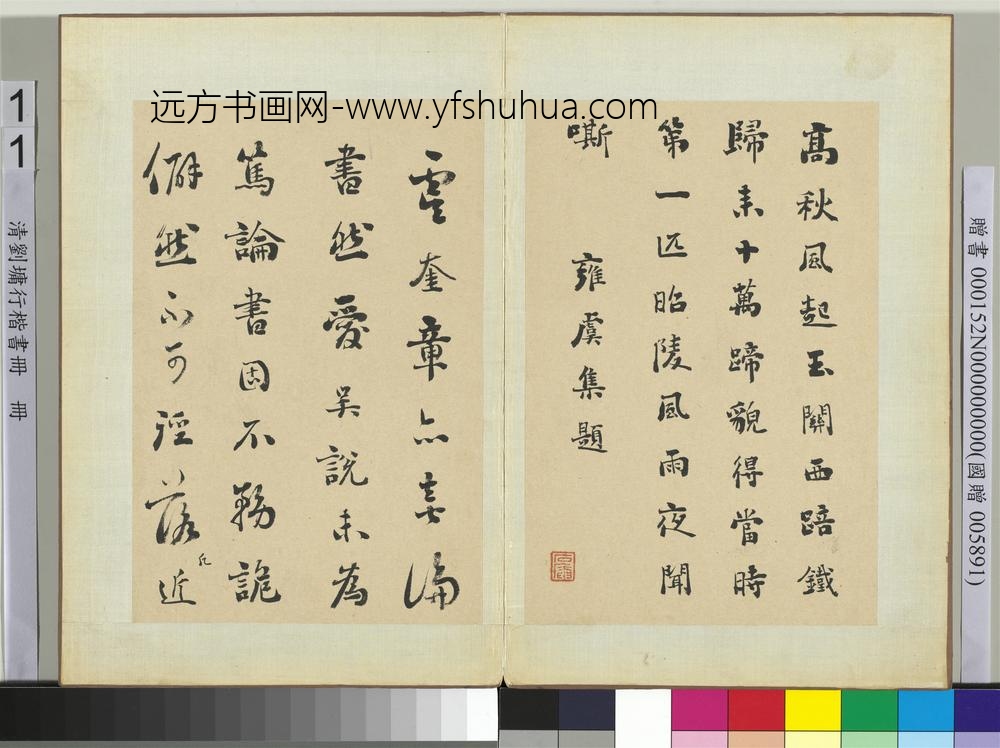 远方书画网-www.yfshuhua.com
高秋風起玉關西踣鐵
歸来十萬蹄貌得當時
第一匹昭陵風雨夜聞
嘶 雍虞集題
石庵
虞奎章亦論
書然愛吳說未為
篤論書固不務詭
僻然不可徑落凡近
11
清劉墉行楷書冊 冊
贈書 000152N000000000(國贈 005891)